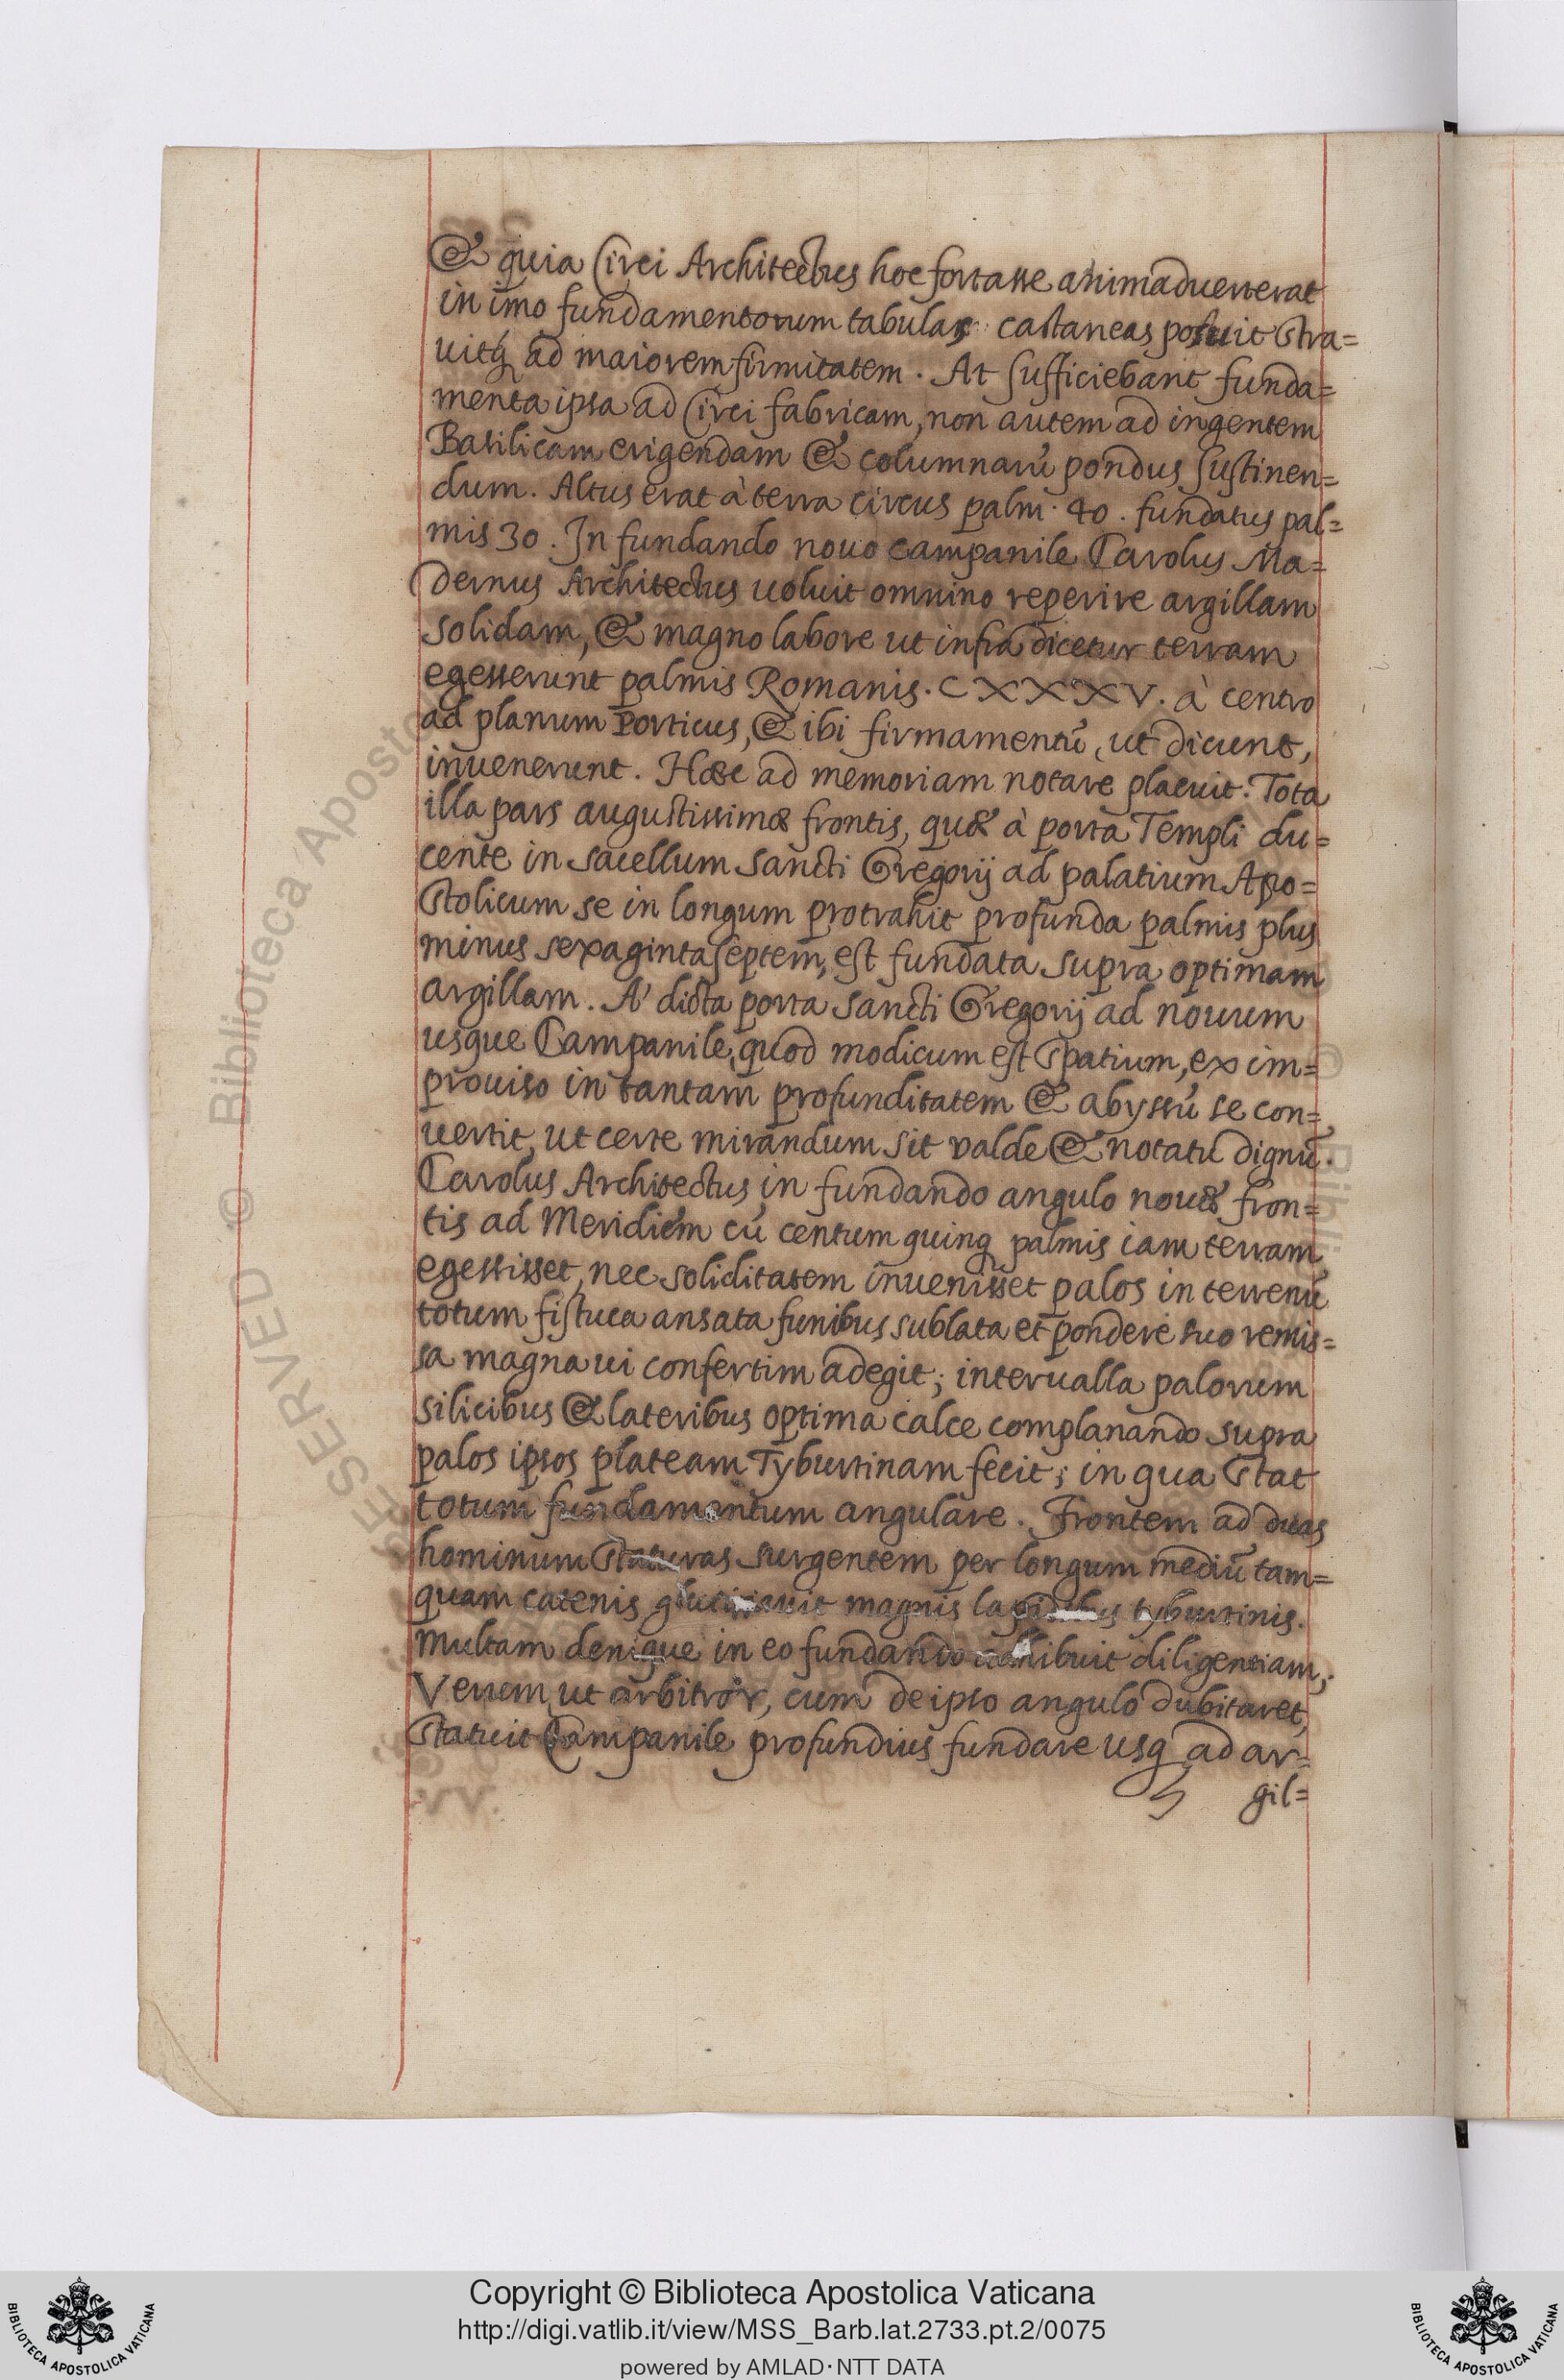 & quia Circi Architectus hoc fortasse animaduerterat
in imo fundamentorum tabulas castaneas posuit stra=
uitq́ ad maiorem firmitatem. At sufficiebant funda=
menta ipsa ad Circi fabricam, non autem ad ingentem
Basilicam erigendam & columnarū pondus sustinen=
dum. Altus erat à terra circus palm. 40. fundatus pal=
mis 30. In fundando nouo campanile Carolus Ma=
dernus Architectus uoluit omnino reperire argillam
solidam, & magno labore ut infra dicetur terram
egesserunt palmis Romanis. CXXXV. à centro
ad planum Porticus, & ibi firmamentū, ut dicunt,
inuenerunt. Hæc ad memoriam notare placuit. Tota
illa pars augustissimæ frontis, quæ à porta Templi du=
cente in sacellum Sancti Gregorij ad palatium Apo=
stolicum se in longum protrahit profunda palmis plus
minus sexaginta septem, est fundata supra optimam
argillam. A' dicta porta Sancti Gregorij ad nouum
usque Campanile, quod modicum est spatium, ex im=
prouiso in tantam profunditatem & abyssū se con=
uertit, ut certe mirandum sit valde & notatu dignū.
Carolus Architectus in fundando angulo nouæ fron=
tis ad Meridiem cū centum quinq palmis iam terram
egessisset, nec soliditatem inuenisset palos in terrenū
totum fistuca ansata funibus sublata et pondere suo remis=
sa magna ui confertim adegit; interualla palorum
silicibus & lateribus optima calce complanando supra
palos ipsos plateam Tyburtinam fecit; in qua stat
totum fundamentum angulare. Frontem ad duas
hominum staturas surgentem per longum mediū tam=
quam catenis glutinauit magnis lapidibus tyburtinis.
Multam denique in eo fundando adhibuit diligentiam;
Verum, ut arbitror, cum de ipso angulo dubitaret,
statuit Campanile profundius fundare usq ad ar=
gil=
© Biblioteca Aposto
RESERVED
Copyright © Biblioteca Apostolica Vaticana
http://digi.vatlib.it/view/MSS_Barb.lat.2733.pt.2/0075
powered by AMLAD·NTT DATA
BIBLIOTECA APOSTOLICA VATICANA
BIBLIOTECA APOSTOLICA VATICANA